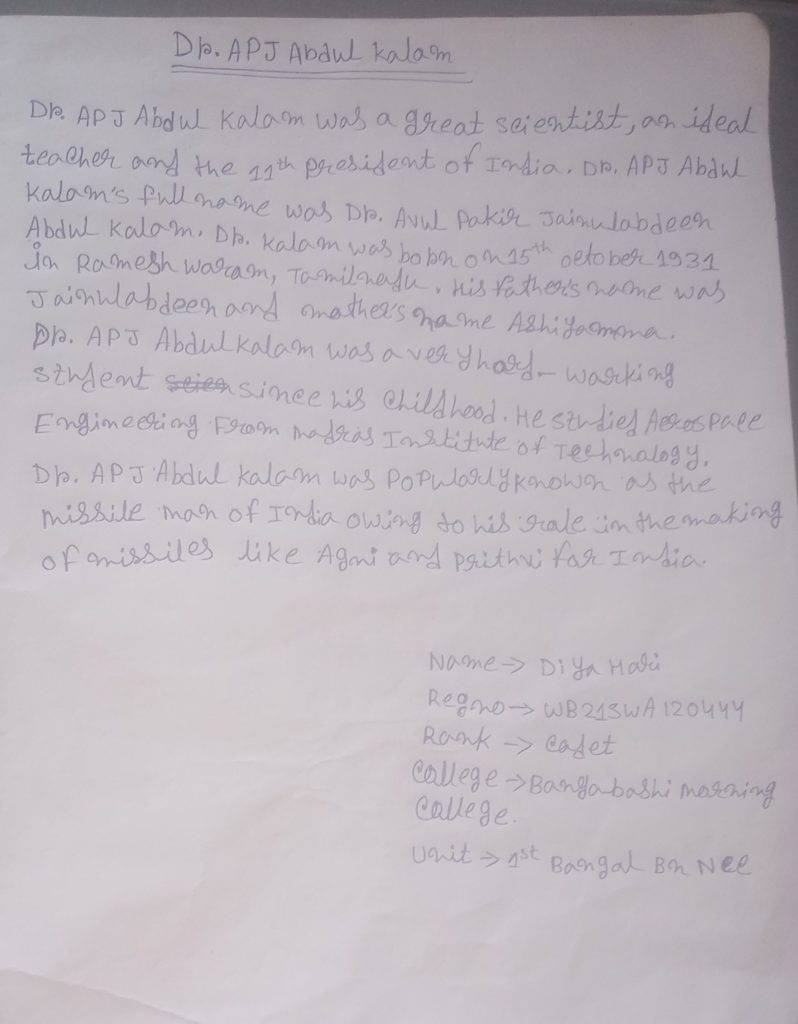 Dr. APJ Abdul Kalam
Dr. APJ Abdul Kalam was a great scientist, an ideal
teacher and the 11th president of India. Dr. APJ Abdul
Kalam's full name was Dr. Avul Pakir Jainulabdeen
Abdul Kalam. Dr. Kalam was born on 15th october 1931
in Ramesh waram, Tamilnadu. His father's name was
Jainulabdeen and mother's name Ashiyamma.
Dr. APJ Abdul Kalam was a very hard-working
student since his childhood. He studied Aerospace
Engineering From Madras Institute of Technology.
Dr. APJ Abdul Kalam was popularly known as the
missile man of India owing to his role in the making
of missiles like Agni and prithvi for India.
Name → Diya Hari
Regno → WB21SWA120444
Rank → Cadet
College → Bangabashi morning
College.
Unit → 1st Bangal Bn Ncc